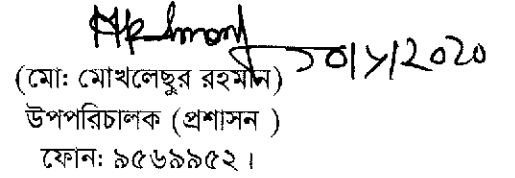 ১০/১/2020
(মো: মোখলেছুর রহমান)
উপপরিচালক (প্রশাসন )
ফোন: ৯৫৬৯৯৫২।